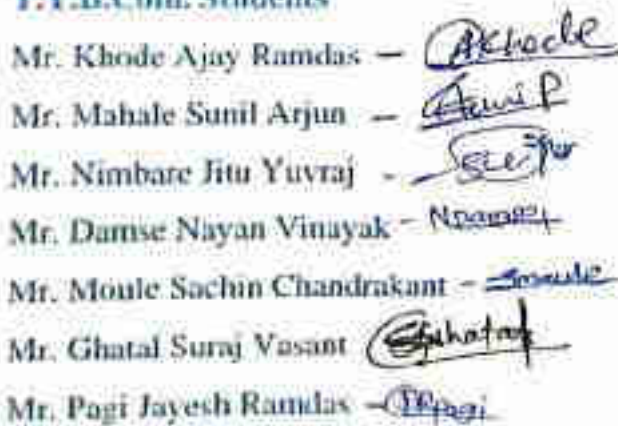 T.Y.B.Com. Students
Mr. Khode Ajay Ramdas – AKhode
Mr. Mahale Sunil Arjun –
Mr. Nimbare Jitu Yuvraj -
Mr. Damse Nayan Vinayak -
Mr. Moule Sachin Chandrakant - Smoule
Mr. Ghatal Suraj Vasant
Mr. Pagi Jayesh Ramdas –